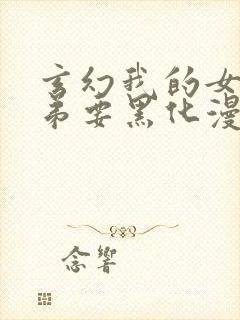 玄幻我的女
弟要黑化漫
念響